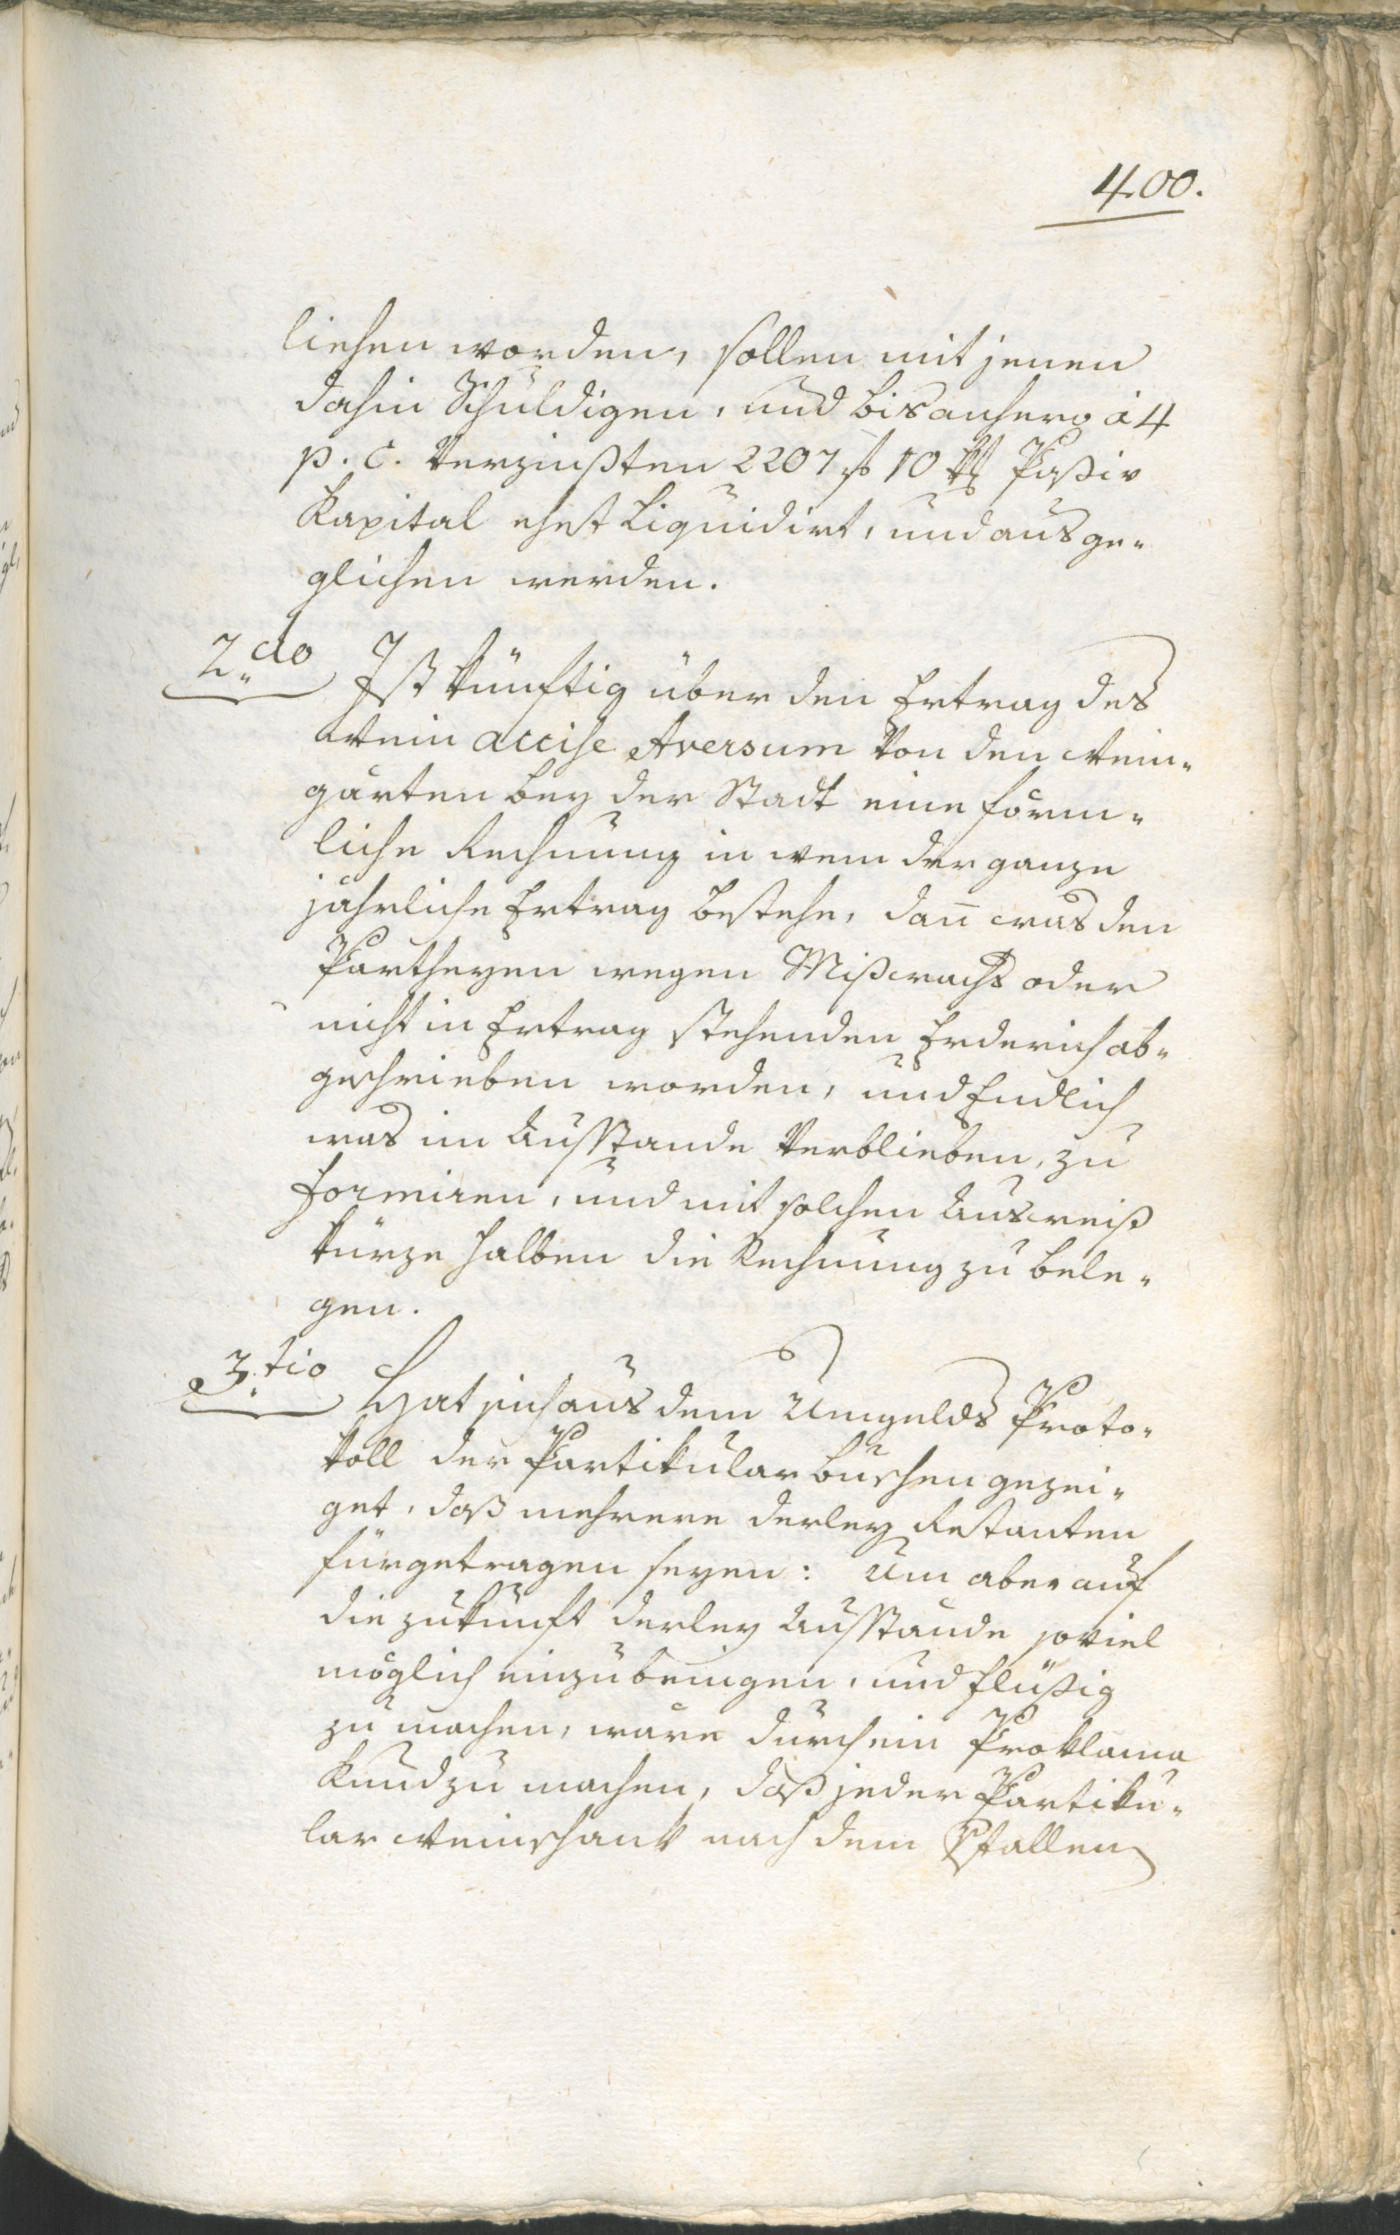 400.
liehen worden, sollen mit jenen
dahin Schuldigen, und bis anhero à 4
p. C. Verzinßten 2207 f 10 x Paßiv
Kapital ehest Liquidirt, und ausge-
glichen werden.
2do Ist künftig über den Ertrag des
Wein accise Aversum von den Wein-
gärten bey der Stadt eine förm-
liche Rechnung in wem der ganze
jährliche Ertrag bestehe, dañ was den
Partheyen wegen Mißwachs oder
nicht in Ertrag stehenden Erderich ab-
geschrieben worden, und Endlich
was im Ausstande Verblieben, zu
formiren, und mit solchen Ausweiß
kürze halben die Rechnung zu bele-
gen.
3tio Hat sich aus dem Umgelds Proto-
koll der Partikular buschen gezei-
get, daß mehrere derley Restanten
fürgetragen seyen: Um aber auf
die zukunft derley Ausstände soviel
möglich einzubringen, und flüßig
zu machen, wäre durch ein Proklama
Kund zu machen, daß jeder Partiku-
lar Weinschank nach dem